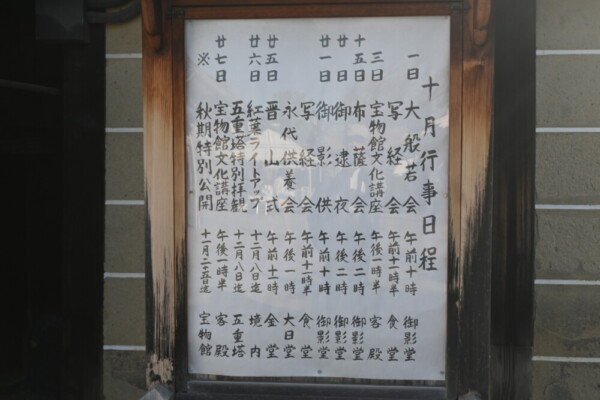 十月行事日程
一日 大般若会 午前十時 御影堂
写経会 午前十一時半 食堂
三日 宝物館文化講座 午後一時 客殿
十五日 布薩会 午後二時 御影堂
廿日 御逮夜 午後二時 御影堂
廿一日 御影供 午前十時 御影堂
写経会 午前十一時半 食堂
永代供養会 午後一時 大日堂
廿五日 晋山式 午前十一時 金堂
廿六日 紅葉ライトアップ 十二月八日迄 境内
五重塔特別拝観 十二月八日迄 五重塔
廿七日 宝物館文化講座 午後一時半 客殿
※ 秋期特別公開 十一月二十五日迄 宝物館